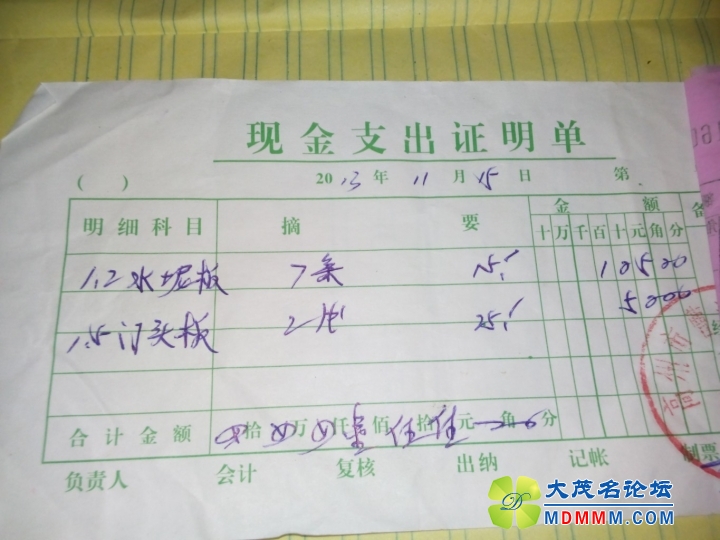 现金支出证明单
( ) 2013年 11月 15日 第
明细科目 摘要 金额 备
十万千百十元角分
1.2水坭板 7条 15.- 10500
1.5门头板 2片 25.- 5000
合计金额 拾 万 仟 壹佰 伍拾 伍元 角 分
负责人 会计 复核 出纳 记帐 制票
大茂名论坛
MDMMM.COM